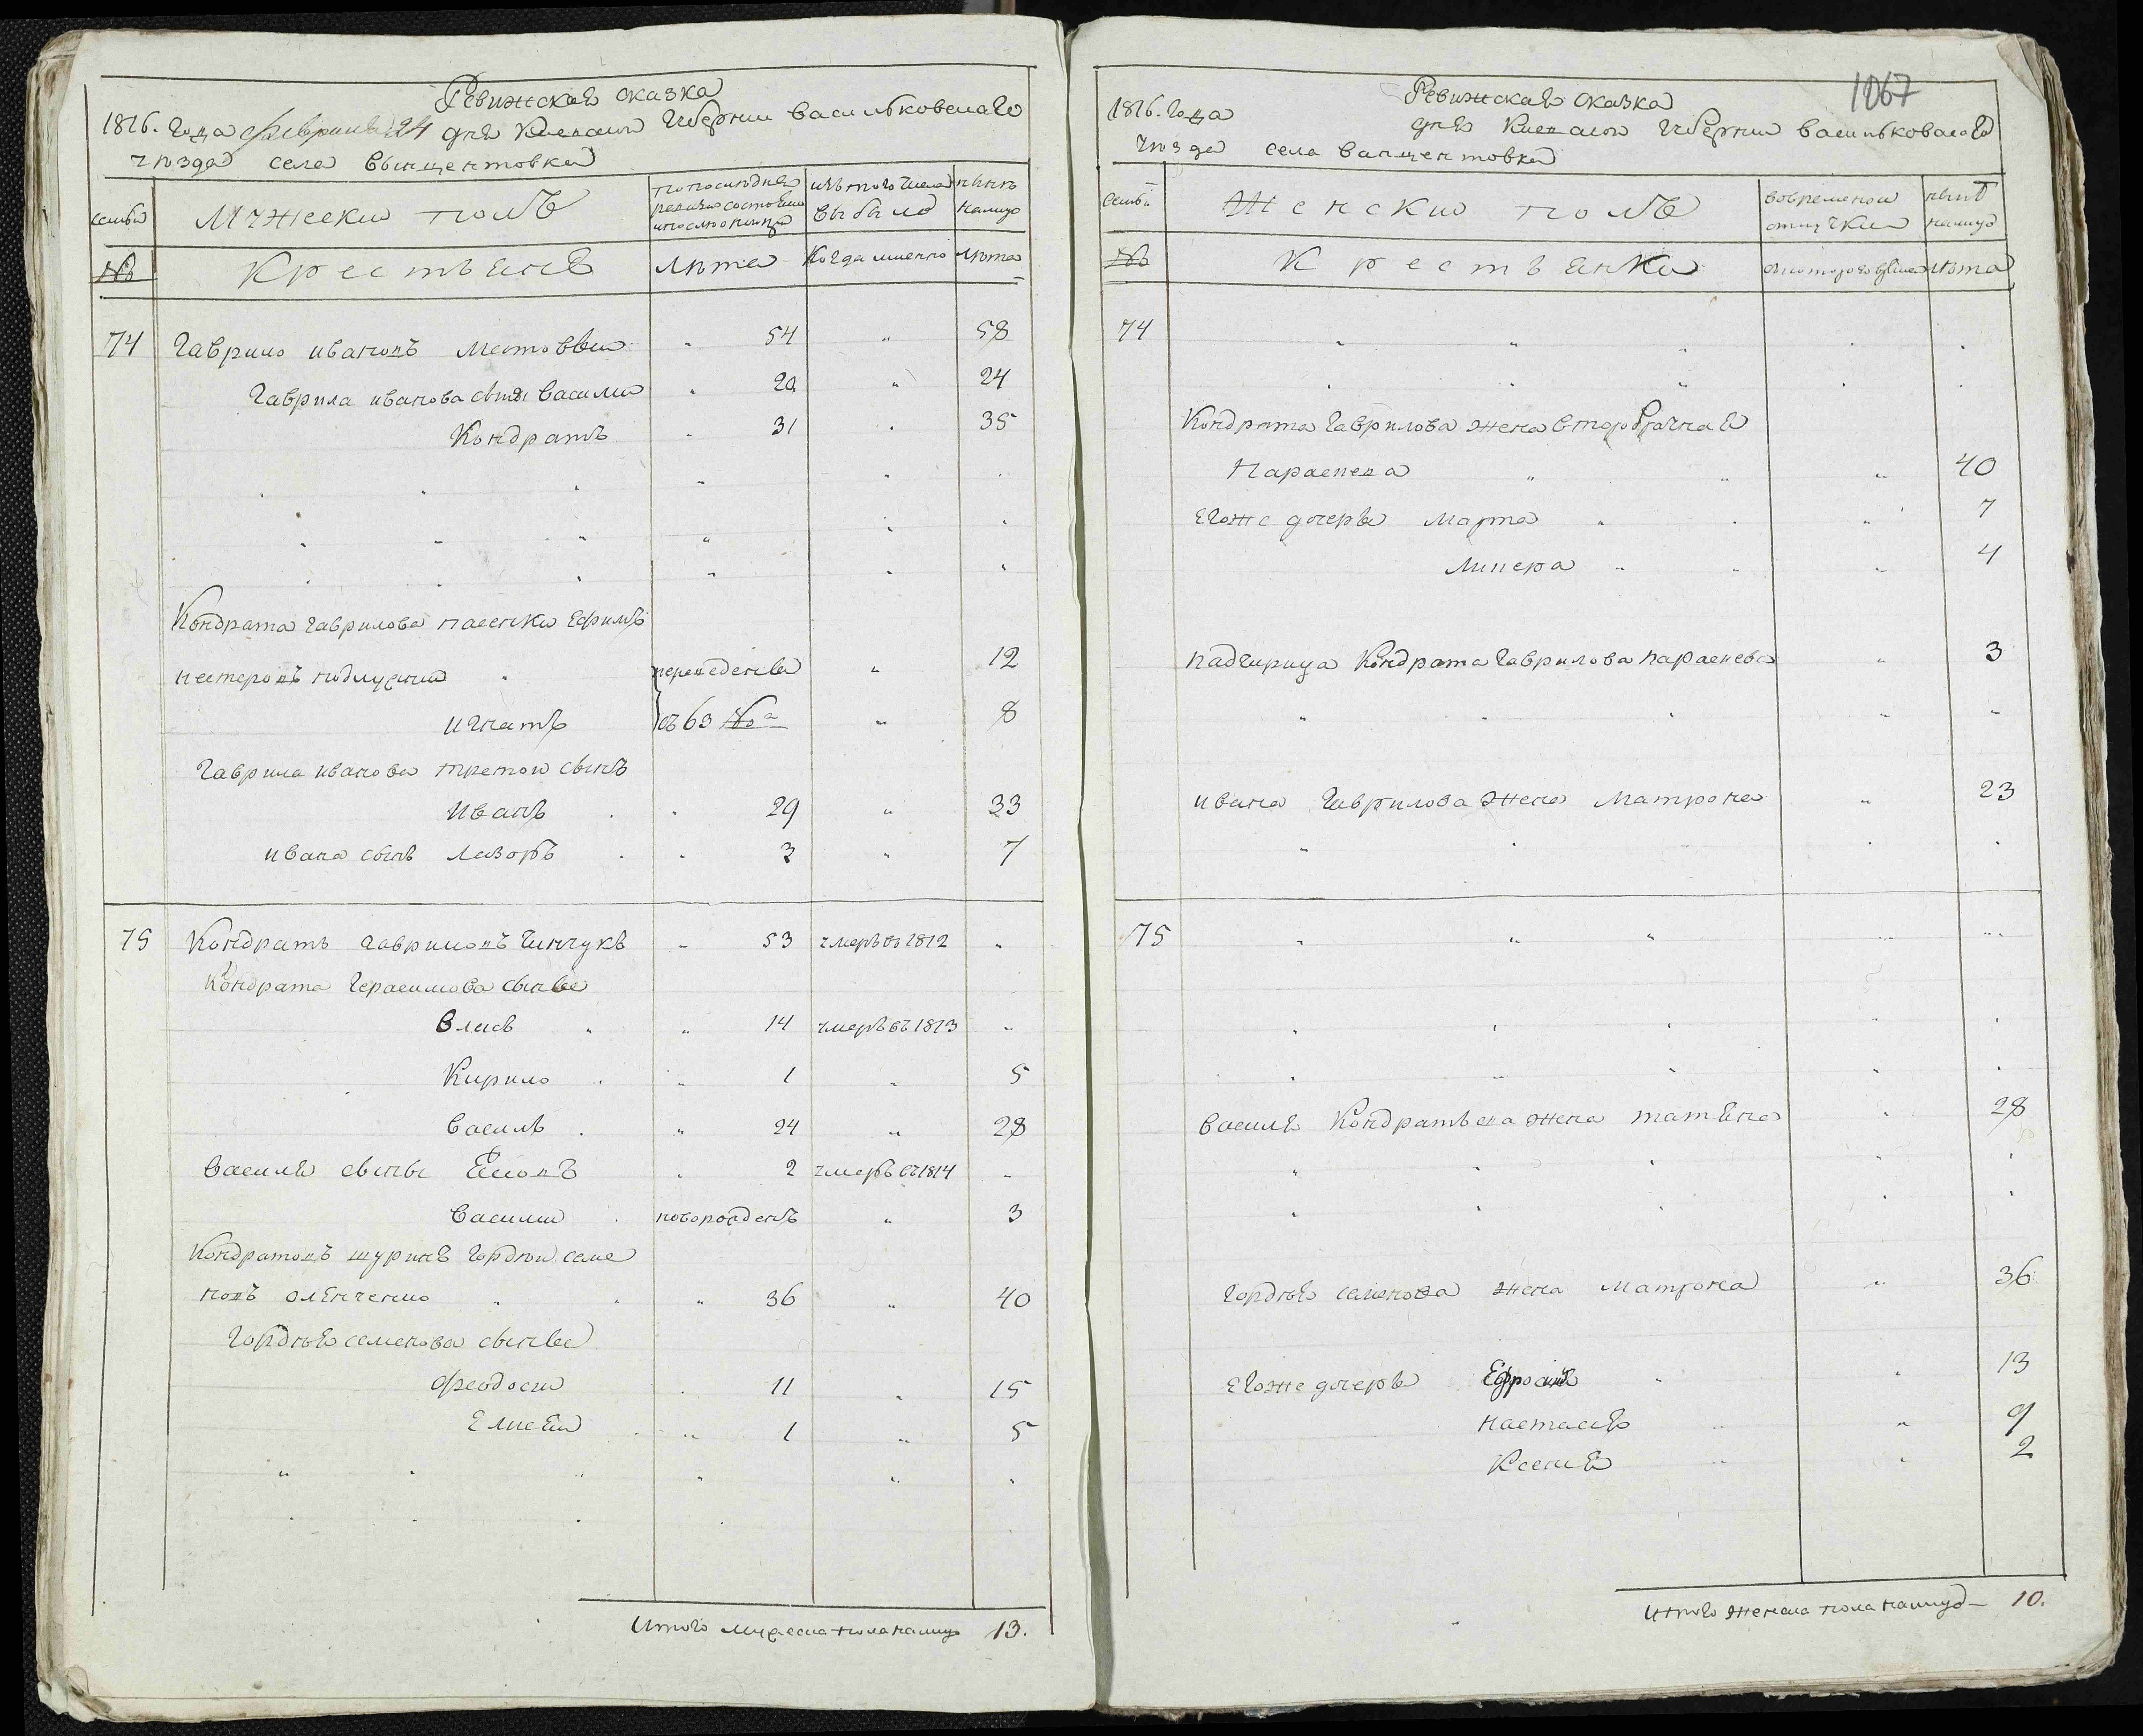 Ревижская сказка
1816. года февраля 24 дня Киевской губернии васильковскаго
уѣзда села Винцентовки
семьи
Мужески полъ
по последней ревизии состояло и после оной прибыло
изъ того числа выбыло
нынѣ налицо
№
Крестьяне
лѣта
когда именно
лѣта
74 Гаврило ивановъ 54 58
Гаврила иванова сынъ васили 20 24
Кондратъ 31 35
Кондрата гаврилова пасенки Ефимъ
нестеровъ переведены 12
игнатъ съ 63 № 8
Гаврила иванова третои сынъ
Иванъ 29 33
ивана сынъ Лазоръ 3 7
75 Кондратъ гавриловъ 53 умеръ въ 1812
Кондрата Герасимова сынве
Власъ 14 умеръ въ 1813
Кирило 1 5
василь 24 28
василя сыны 2 умеръ въ 1814
васили новорожденъ 3
Кондратовъ шуринъ Гордѣи семе
новъ 36 40
Гордѣя семенова сынве
Феодоси 11 15
Елисѣи 1 5
Итого мужеска пола налицо 13.
1067
Ревижская сказка
1816. года
дня Киевской губернии васильковскаго
уѣзда села Винцентовки
семьи
Женски полъ
во временной отлучки
нынѣ налицо
№
Крестьянки
лѣта
74
Кондрата гаврилова жена второбрачная
Параскева 40
Егоже дочеры Марта 7
4
падчирица Кондрата гаврилова параскева 3
ивана гаврилова жена Матрона 23
75
василя Кондратьева жена татяна 28
гордѣя семенова жена Матрона 36
Егоже дочеры 13
настася 9
Ксеня 2
Итого женска пола налицо 10.